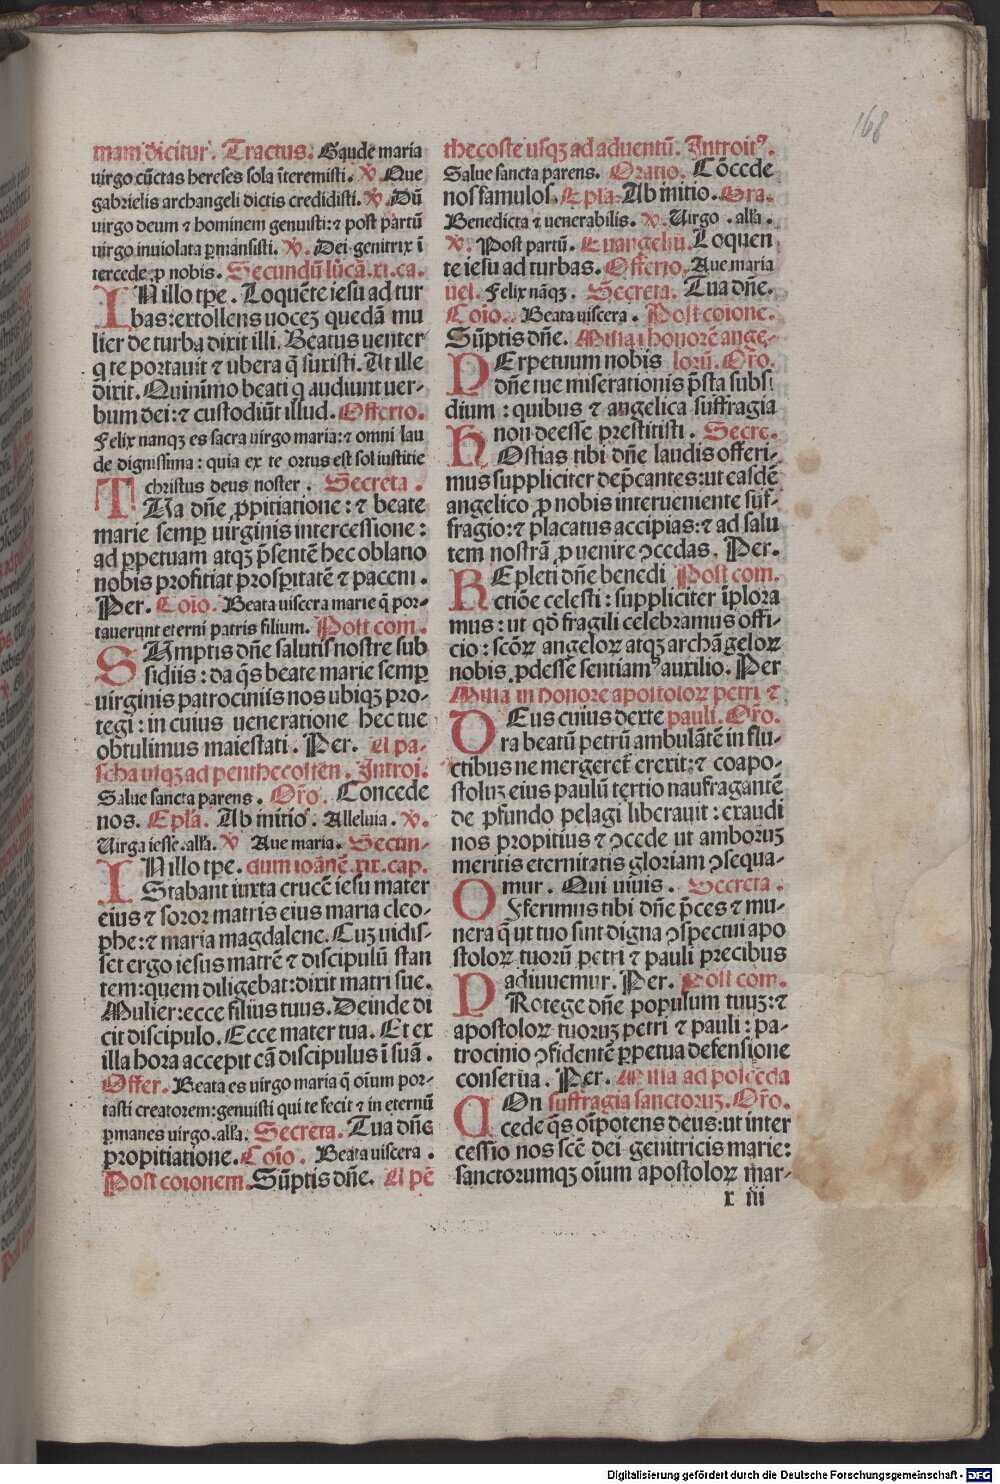 168
mam dicitur. Tractus. Gaude maria
virgo cūctas hereses sola īteremisti. ℣. Que
gabrielis archangeli dictis credidisti. ℣. Dū
virgo deum ⁊ hominem genuisti: ⁊ post partū
virgo inuiolata ꝑmansisti. ℣. Dei genitrix ī
tercede ꝓ nobis. Secundū lucā. xi. ca.
IN illo tꝑe. Loquēte iesu ad tur
bas: extollens uoceꝫ quedā mu
lier de turba dixit illi. Beatus uenter
q te portauit ⁊ ubera q̄ suxisti. At ille
dixit. Quinimo beati q audiunt uer-
bum dei: ⁊ custodiūt illud. Offerto.
Felix nanqꝫ es sacra uirgo maria: ⁊ omni lau
de dignissima: quia ex te ortus est sol iustitie
christus deus noster. Secreta.
TUa dn̄e ꝓpitiatione: ⁊ beate
marie semꝑ uirginis intercessione:
ad ꝑpetuam atqꝫ p̄sentē hec oblatio
nobis profitiat prosꝑitatē ⁊ pacem.
Per. Coīo. Beata uiscera marie q̄ por-
tauerunt eterni patris filium. Post com.
SUmptis dn̄e salutis nostre sub
sidiis: da q̄s beate marie semꝑ
uirginis patrociniis nos ubiqꝫ pro-
tegi: in cuius ueneratione hec tue
obtulimus maiestati. Per. A pa-
scha usqꝫ ad penthecosten. Introi.
Salue sancta parens. Or̄o. Concede
nos. Epl̄a. Ab initio. Alleluia. ℣.
Uirga iesse. all'a. ℣ Aue maria. Secun-
IN illo tꝑe. dum ioānē. xix. cap.
Stabant iuxta crucē iesu mater
eius ⁊ soror matris eius maria cleo-
phe: ⁊ maria magdalene. Cuꝫ uidis-
set ergo iesus matrē ⁊ discipulū stan
tem: quem diligebat: dixit matri sue.
Mulier: ecce filius tuus. Deinde di
cit discipulo. Ecce mater tua. Et ex
illa hora accepit eā discipulus ī suā.
Offer. Beata es uirgo maria q̄ oīum por-
tasti creatorem: genuisti qui te fecit ⁊ in eternū
ꝑmanes uirgo. all'a. Secreta. Tua dn̄e
propitiatione. Coīo. Beata uiscera.
Post coionem. Sūptis dn̄e. A pē
thecoste usqꝫ ad aduentū. Introitꝰ.
Salue sancta parens. Oratio. Cōcede
nos famulos. Epl̄a. Ab initio. Gra.
Benedicta ⁊ uenerabilis. ℣. Uirgo. all'a.
℣. Post partū. Euangeliū. Loquen
te iesu ad turbas. Offerto. Aue maria
uel. Felix nāqꝫ. Secreta. Tua dn̄e.
Coīo. Beata uiscera. Post coione.
Sūptis dn̄e. Missa ī honorē ange-
PErpetuum nobis lorū. Or̄o.
dn̄e tue miserationis p̄sta subsi
dium: quibus ⁊ angelica suffragia
non deesse prestitisti. Secre.
HOstias tibi dn̄e laudis offeri-
mus suppliciter dep̄cantes: ut easdē
angelico ꝓ nobis interueniente suf-
fragio: ⁊ placatus accipias: ⁊ ad salu
tem nostrā ꝓuenire ↄcedas. Per.
REpleti dn̄e benedi Post com.
ctiōe celesti: suppliciter īplora
mus: ut qd̄ fragili celebramus offi-
cio: scōꝝ angeloꝝ atqꝫ archāgeloꝝ
nobis ꝓdesse sentiamꝰ auxilio. Per
Missa in honore apostoloꝝ petri ⁊
DEus cuius dexte pauli. Or̄o.
ra beatū petrū ambulātē in flu-
ctibus ne mergeret̄ erexit: ⁊ coapo-
stoluꝫ eius paulū tertio naufragantē
de ꝓfundo pelagi liberauit: exaudi
nos propitius ⁊ ↄcede ut amboruꝫ
meritis eternitatis gloriam ↄsequa-
mur. Qui uiuis. Secreta.
OFferimus tibi dn̄e p̄ces ⁊ mu-
nera q̄ ut tuo sint digna ↄspectui apo
stoloꝝ tuorū petri ⁊ pauli precibus
adiuuemur. Per. Post com.
PRotege dn̄e populum tuuꝫ: ⁊
apostoloꝝ tuoruꝫ petri ⁊ pauli: pa-
trocinio ↄfidentē ꝑpetua defensione
conserua. Per. Missa ad poscēda
COn suffragia sanctoruꝫ. Or̄o.
cede q̄s oīpotens deus: ut inter
cessio nos scē dei genitricis marie:
sanctorumqꝫ oīum apostoloꝝ mar-
x iiii
Digitalisierung gefördert durch die Deutsche Forschungsgemeinschaft - DFG